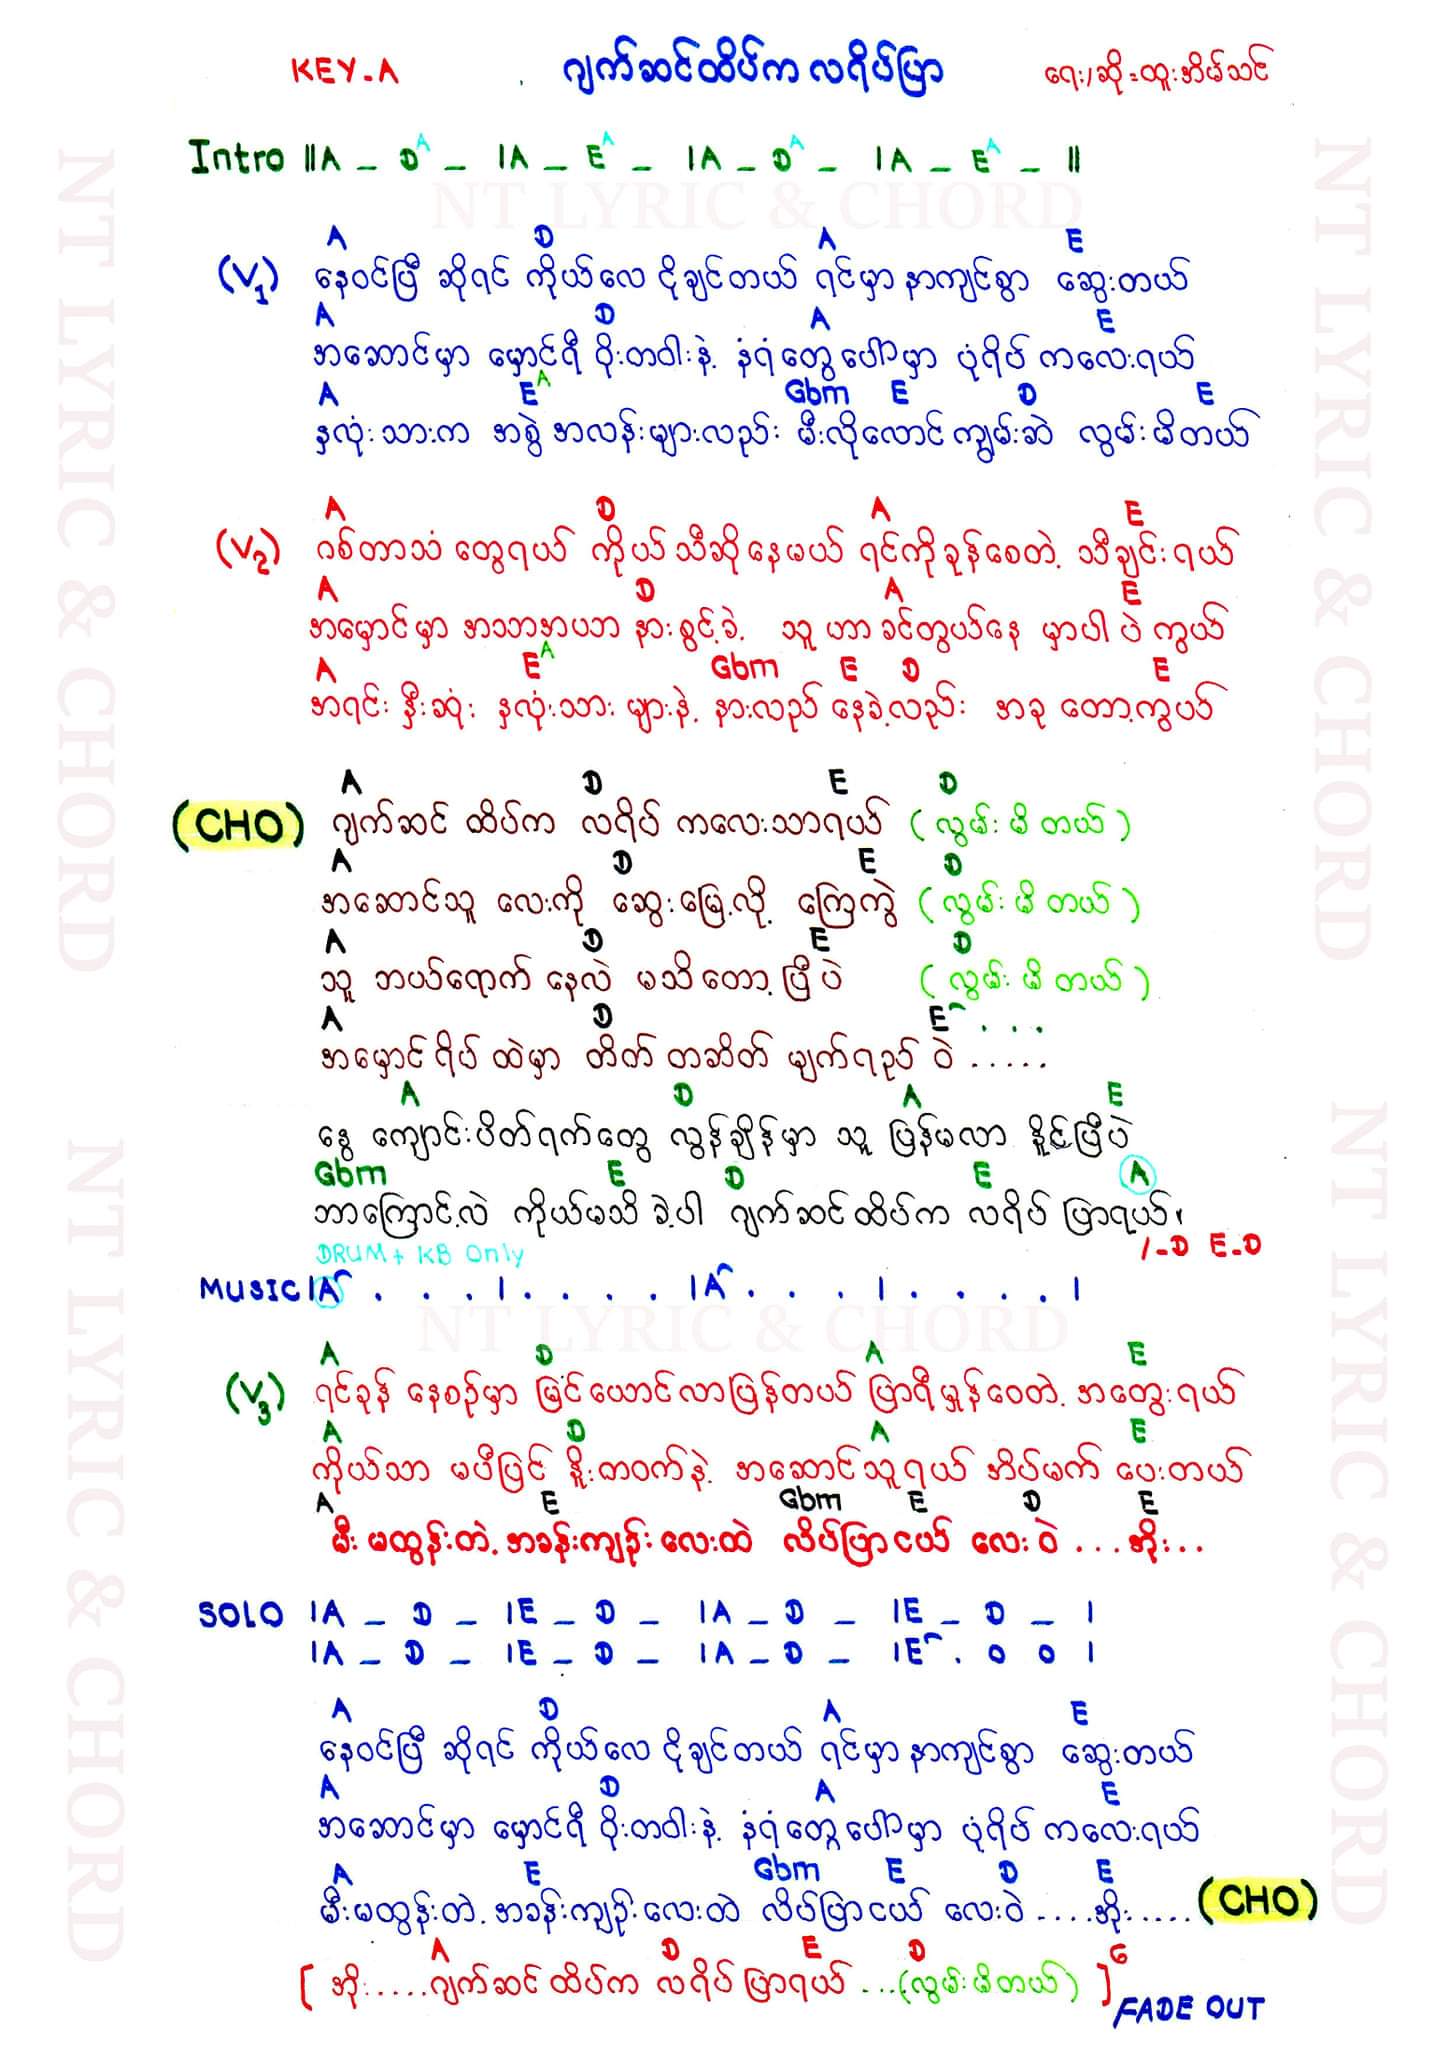 KEY-A ဂျက်ဆင်ထိပ်က လရိပ်ပြာ ရေး/ဆို=ထူးအိမ်သင်
Intro ||A - D A - |A - E A - |A - D A - |A - E A - ||
A D A E
(V1) နေဝင်ပြီ ဆိုရင် ကိုယ်လေ ငိုချင်တယ် ရင်မှာ နာကျင်စွာ ဆွေးတယ်
A D A E
အဆောင်မှာ မှောင်ရီ ဝိုးတဝါးနဲ့ နံရံတွေပေါ်မှာ ပုံရိပ် ကလေးရယ်
A E A Gbm E D E
နှလုံးသားက အစွဲ အလန်းများလည်း မီးလိုလောင်ကျွမ်းဆဲ လွမ်းမိတယ်
A D A E
(V2) ဂစ်တာသံ တွေရယ် ကိုယ် သီဆိုနေမယ် ရင်ကိုခုန်စေတဲ့ သီချင်းရယ်
A D A E
အမှောင်မှာ အသာအယာ နားစွင့်ခဲ့ သူ ဟာ ခင်တွယ်နေ မှာပါ ပဲ ကွယ်
A E A Gbm E D E
အရင်း နှီးဆုံး နှလုံးသား များနဲ့ နားလည် နေခဲ့လည်း အခု တော့ကွယ်
A D E D
(CHO) ဂျက်ဆင် ထိပ်က လရိပ် ကလေးသာရယ် (လွမ်းမိတယ်)
A D E D
အဆောင်သူ လေးကို ဆွေးမြေ့လို့ ကြေကွဲ (လွမ်းမိတယ်)
A D E D
သူ ဘယ်ရောက် နေလဲ မသိတော့ပြီ ပဲ (လွမ်းမိတယ်)
A D E . . .
အမှောင်ရိပ် ထဲမှာ တိတ် တဆိတ် မျက်ရည် ဝဲ .....
A D A E
နွေ ကျောင်းပိတ်ရက်တွေ လွန်ချိန်မှာ သူ ပြန်မလာ နိုင်ပြီပဲ
Gbm E D E A
ဘာကြောင့်လဲ ကိုယ်မသိခဲ့ပါ ဂျက်ဆင်ထိပ်က လရိပ် ပြာရယ်၊
DRUM + KB Only /-D E-D
MUSIC |A . . . | . . . . |A . . . | . . . . . |
A D A E
(V3) ရင်ခုန် နေစဉ်မှာ မြင်ယောင်လာပြန်တယ် ပြာရီမှုန်ဝေတဲ့ အတွေးရယ်
A D A E
ကိုယ်သာ မပီပြင် နိုးတဝက်နဲ့ အဆောင်သူရယ် အိပ်မက် ပေးတယ်
A E Gbm E D E
မီးမထွန်းတဲ့ အခန်းကျဉ်းလေးထဲ လိပ်ပြာငယ် လေးဝဲ ...အိုး...
SOLO |A - D - |E - D - |A - D - |E - D - |
|A - D - |E - D - |A - D - |E . o o |
A D A E
နေဝင်ပြီ ဆိုရင် ကိုယ်လေ ငိုချင်တယ် ရင်မှာ နာကျင်စွာ ဆွေးတယ်
A D A E
အဆောင်မှာ မှောင်ရီ ဝိုးတဝါးနဲ့ နံရံတွေပေါ်မှာ ပုံရိပ် ကလေးရယ်
A E Gbm E D E
မီးမထွန်းတဲ့ အခန်းကျဉ်းလေးထဲ လိပ်ပြာငယ် လေးဝဲ ....အိုး..... (CHO)
A D E D
[ အိုး.....ဂျက်ဆင် ထိပ်က လရိပ် ပြာရယ် ...(လွမ်းမိတယ်) ]6
FADE OUT
NT LYRIC & CHORD
NT LYRIC & CHORD
NT LYRIC & CHORD
NT LYRIC & CHORD
NT LYRIC & CHORD
NT LYRIC & CHORD